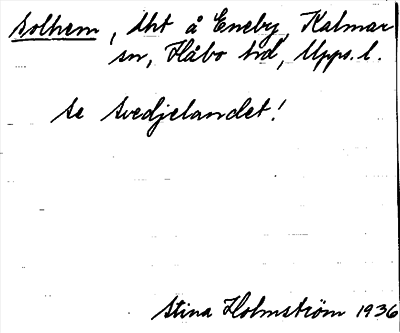 Solhem, lht å Eneby, Kalmar
sn, Håbo hd, Upps. l.
se Svedjelandet!
Stina Holmström 1936